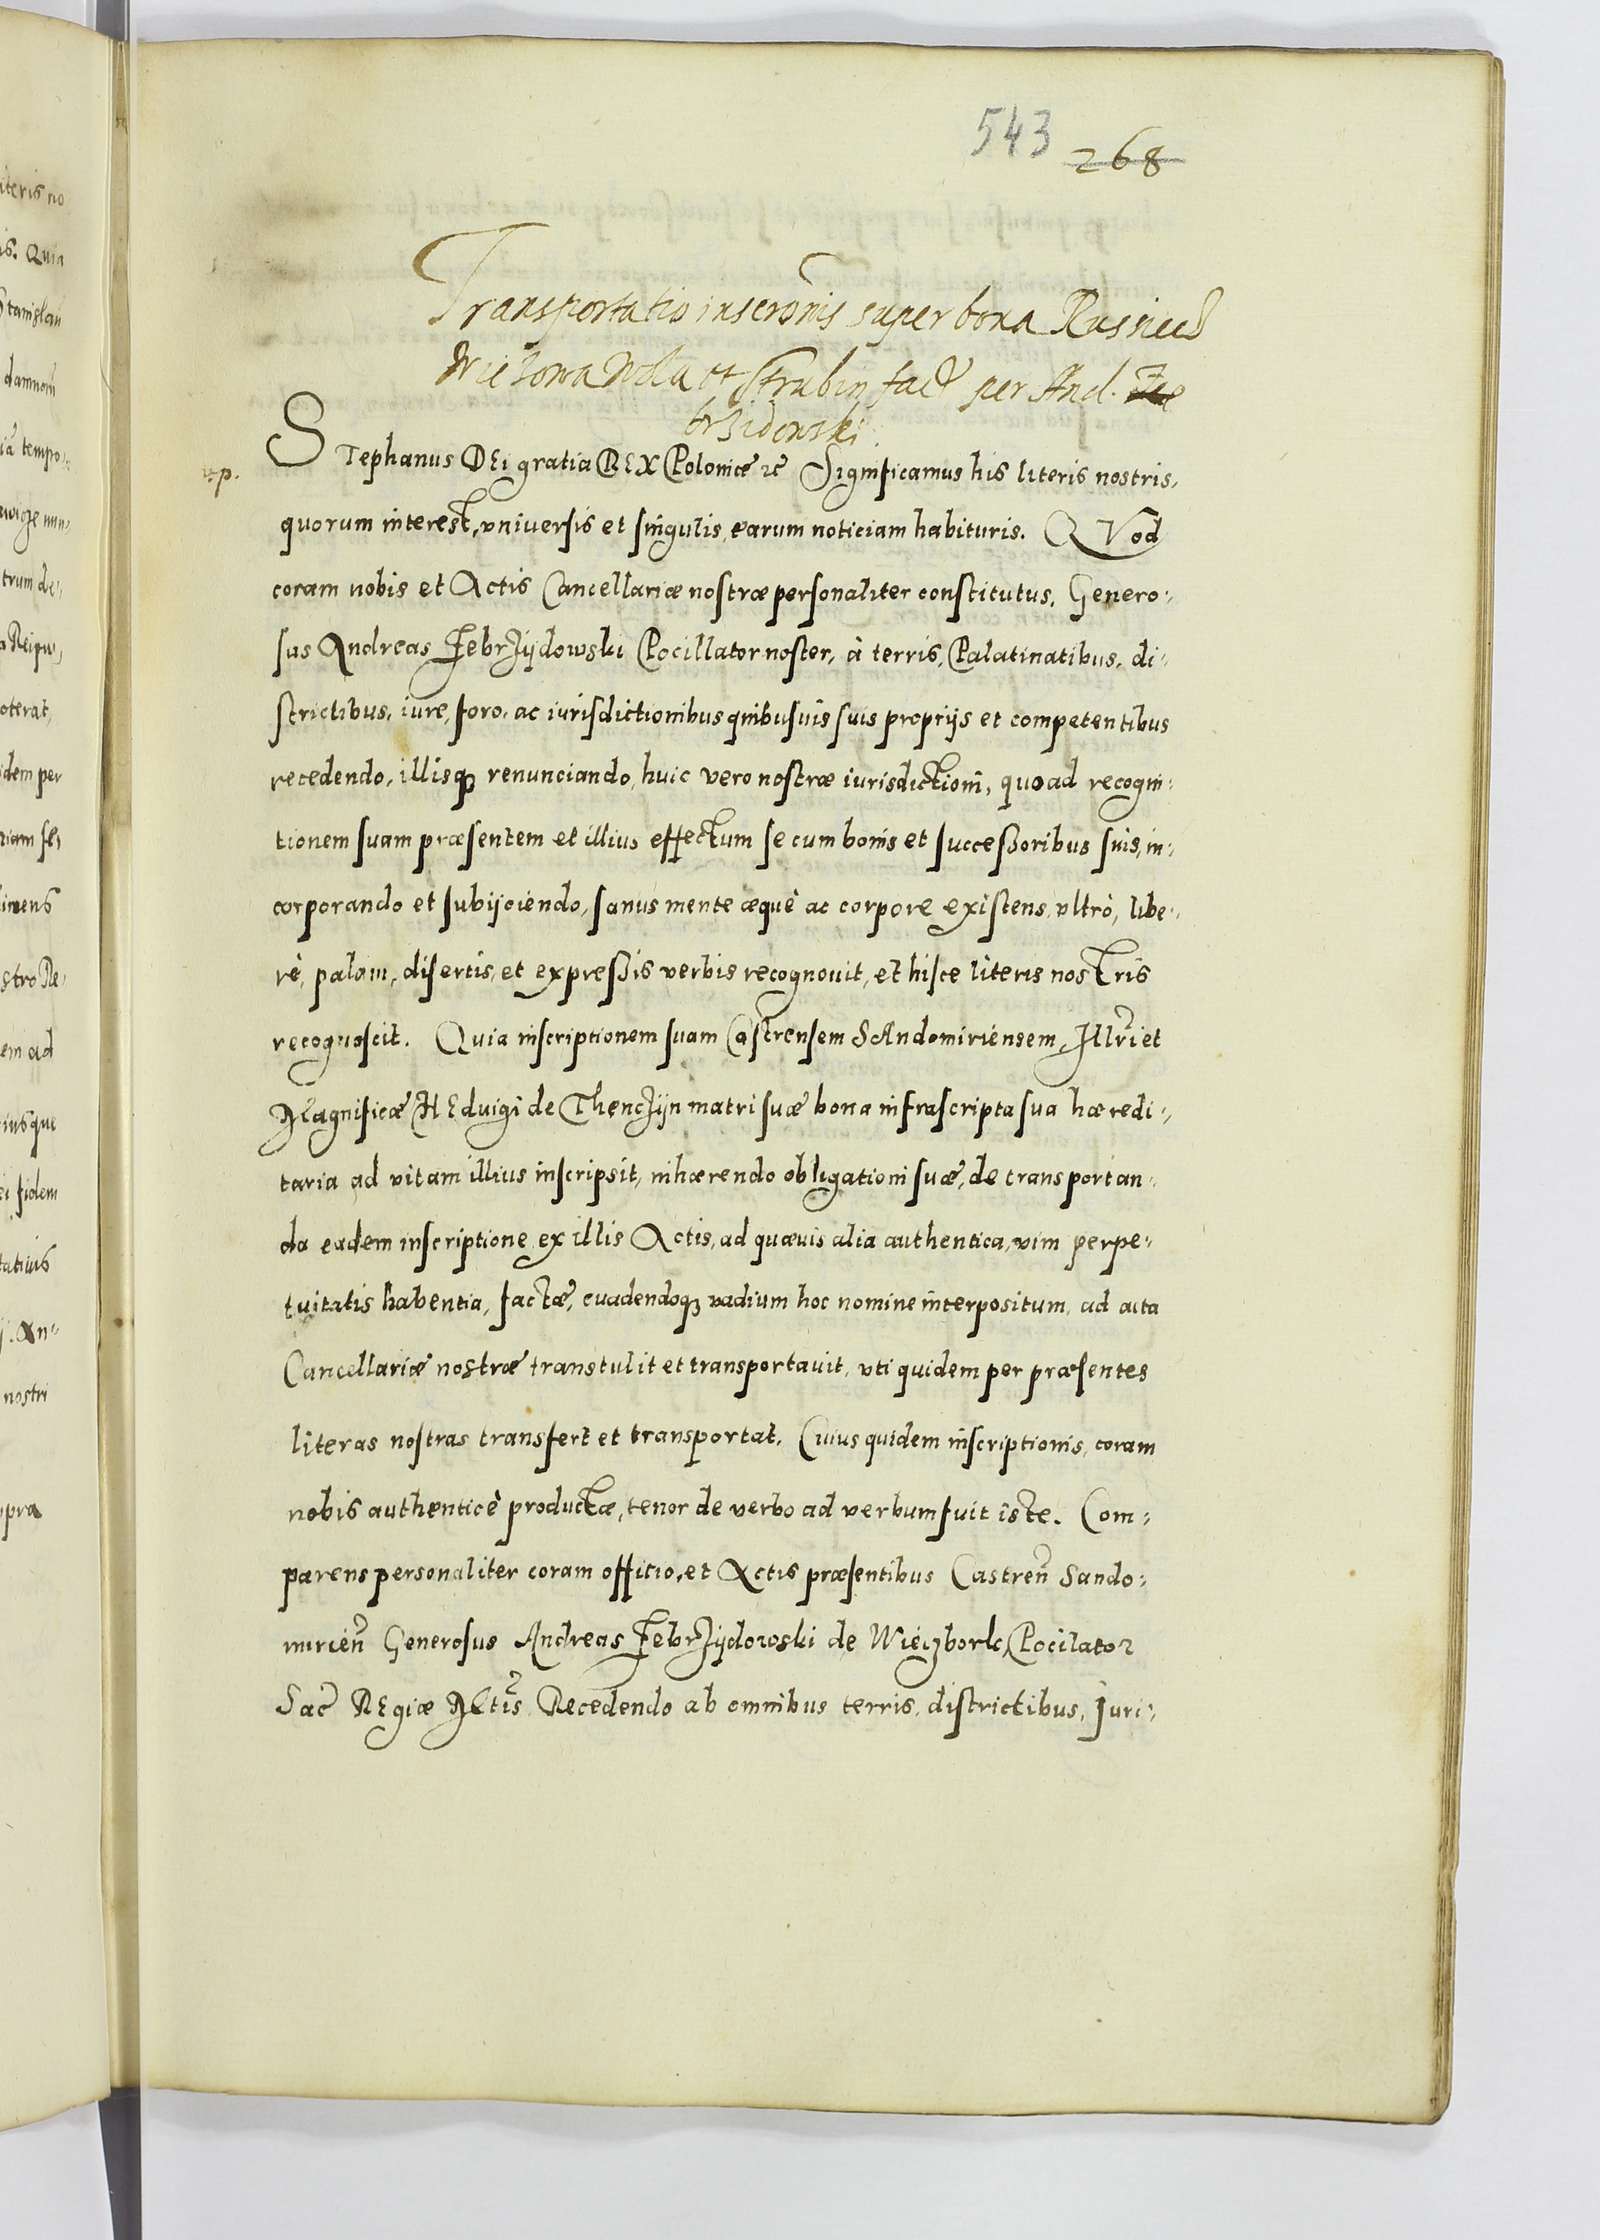 543 268
Transportatio inscronis super bona Rusniecz
Wielowa Wola et Strubin fact per And. Ze
brzidowski.
v. p.
STephanus DEi gratia REX Poloniæ zc Significamus his literis nostris,
quorum interest, vniuersis et singulis, earum noticiam habituris. QVod
coram nobis et Actis Cancellariæ nostræ personaliter constitutus, Genero:
sus Andreas Zebrzijdowski Pocillator noster, à terris, Palatinatibus, di:
strictibus, iure, foro, ac iurisdictionibus quibusuis suis proprijs et competentibus
recedendo, illisq3 renunciando, huic vero nostræ iurisdictioni, quoad recogni:
tionem suam præsentem et illius effectum se cum bonis et successoribus suis, in:
corporando et subijciendo, sanus mente æquè ac corpore existens, vltrò, libe:
rè, palam, disertis, et expressis verbis recognouit, et hisce literis nostris
recognoscit. Quia inscriptionem suam Castrensem SAndomiriensem, Illri et
Magnificæ HEduigi de Thenczijn matri suæ bona infrascripta sua hæredi:
taria ad vitam illius inscripsit, inhærendo obligationi suæ, de transportan:
da eadem inscriptione ex illis Actis, ad quæuis alia authentica, vim perpe:
tuitatis habentia, factæ, euadendoq3 vadium hoc nomine interpositum, ad acta
Cancellariæ nostræ transtulit et transportauit, vti quidem per præsentes
literas nostras transfert et transportat. Cuius quidem inscriptionis, coram
nobis authenticè productæ, tenor de verbo ad verbum fuit iste. Com:
parens personaliter coram officio, et Actis præsentibus Castren Sando:
mirien Generosus Andreas Zebrzijdowski de Wieczbork Pocilator
Sac REgiæ Mtis Recedendo ab omnibus terris, districtibus, Iuri: